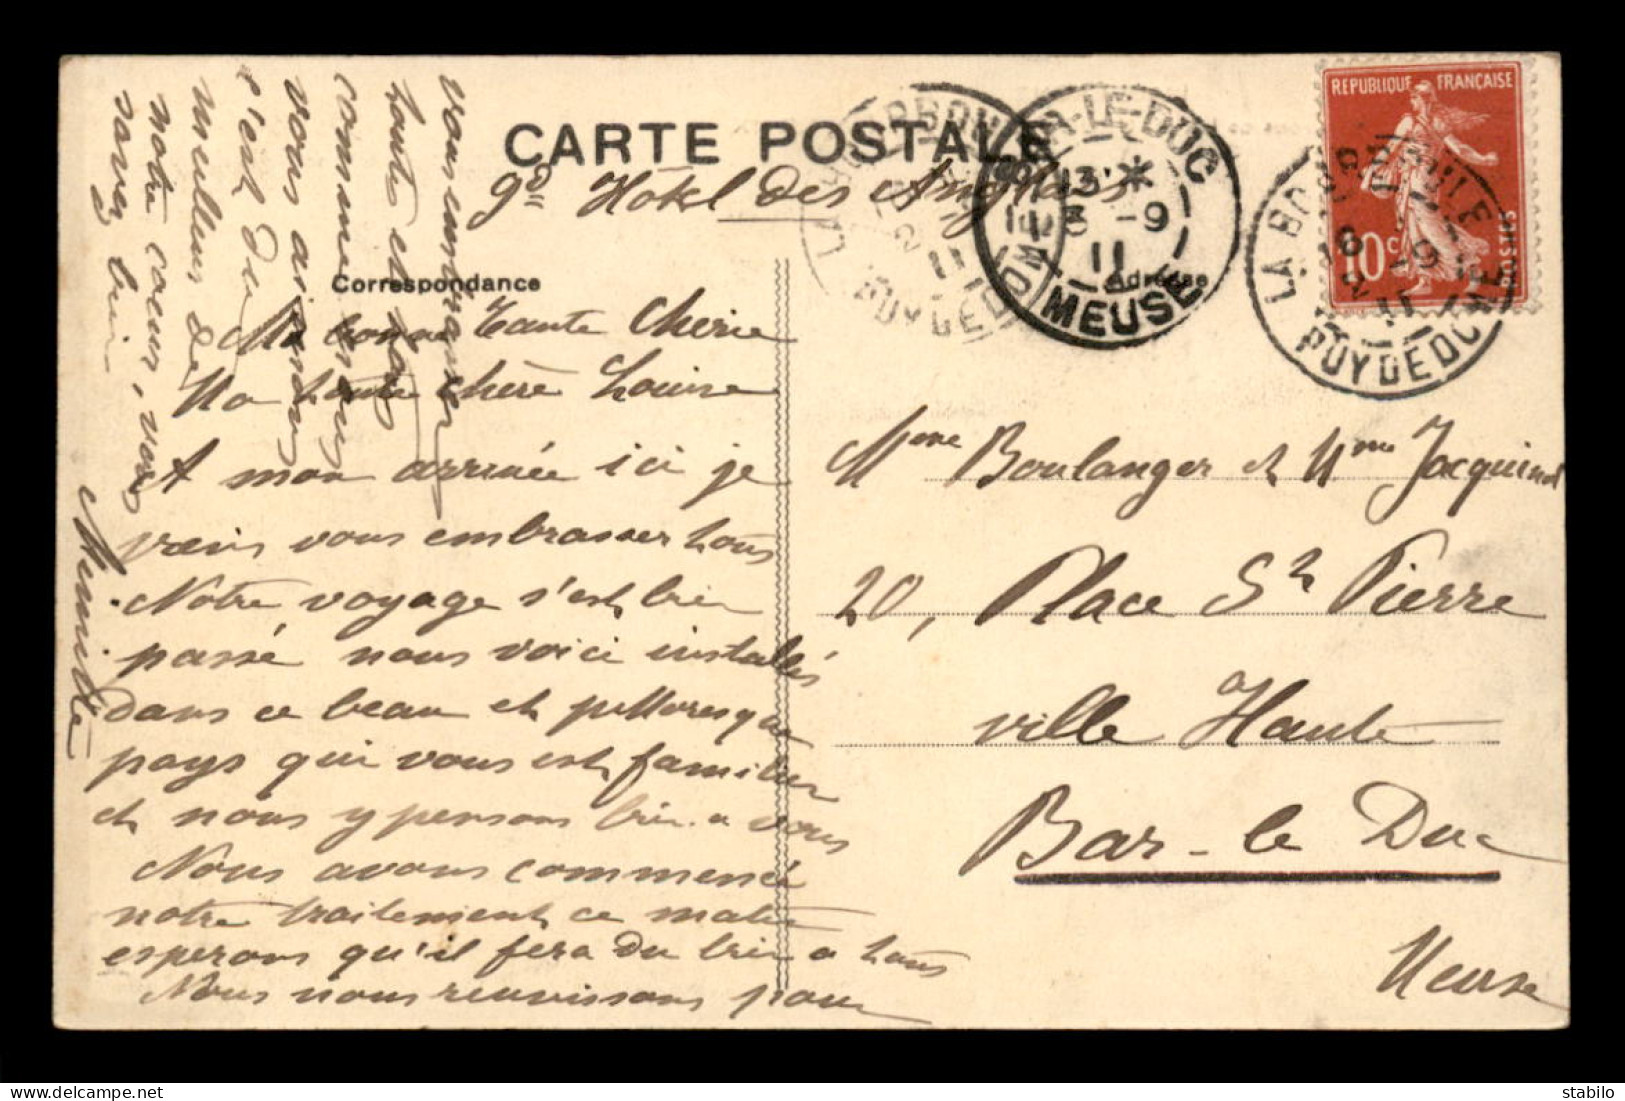 CARTE POSTALE
gd Hôtel des Anglais
Correspondance
Adresse
REPUBLIQUE FRANÇAISE
10c
POSTES
LA BOURBOULE
18
2 -9
11
PUY DE DOME
LA BOURBOULE
2
11
PUY DE DOME
BAR-LE-DUC
13 *
3 -9
11
MEUSE
Ma bonne Tante Cherie
Ma toute chère Louise
A mon arrivée ici je
viens vous embrasser tous
Notre voyage s'est bien
passé nous voici installés
dans ce beau et pittoresque
pays qui vous est familier
et nous y pensons bien a vous
Nous avons commencé
notre traitement ce matin
esperons qu'il fera du bien a tous
Nous nous reunissons pour
vous embrasser
toute et
comme nous
vous aimons
c'est du
meilleur de
notre coeur, vous
savez bien
Mme Boulanger et Mme Jacquinot
20, Place St Pierre
ville Haute
Bar-le Duc
Meuse
stabilo